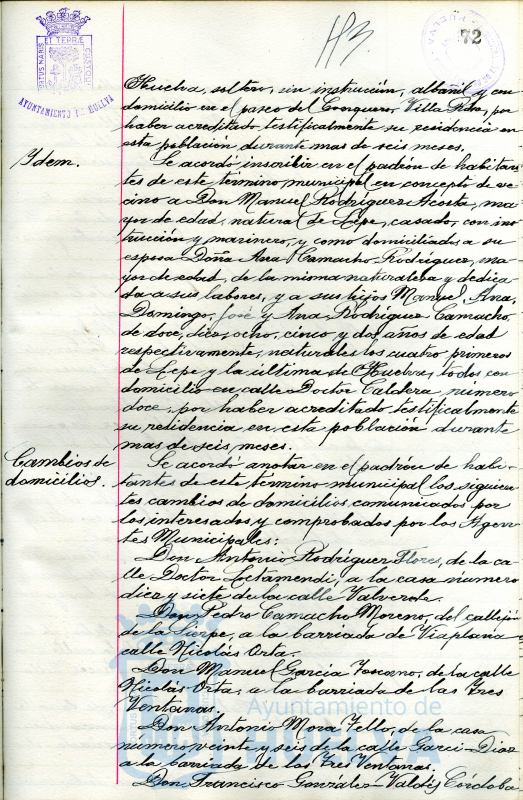 72
AYUNTAMIENTO DE HUELVA
Huelva, soltero, sin instrucción, albañil y con
domicilio en el paseo del Conquero, Villa Rdro, por
haber acreditado testificalmente su residencia en
esta población durante mas de seis meses.
Ydem.
Se acordó inscribir en el padrón de habitan-
tes de este término municipal en concepto de ve-
cino a Don Manuel Rodríguez Acosta, ma-
yor de edad, natural de Lepe, casado, con ins-
trucción y marinero, y como domiciliados a su
esposa Doña Ana Camacho Rodríguez, ma-
yor de edad, de la misma naturaleza y dedica-
da a sus labores, y a sus hijos Manuel, Ana,
Domingo, José y Ana Rodríguez Camacho,
de doce, diez, ocho, cinco y dos años de edad
respectivamente, naturales los cuatro primeros
de Lepe y la última de Huelva, todos con
domicilio en calle Doctor Caldera, número
doce, por haber acreditado testificalmente
su residencia en esta población durante
mas de seis meses.
Cambios de
domicilios.
Se acordó anotar en el padrón de habi-
tantes de este término municipal los siguien-
tes cambios de domicilios comunicados por
los interesados y comprobados por los Agen-
tes Municipales:
Don Antonio Rodríguez Flores, de la ca-
lle Doctor Letamendi, a la casa numero
diez y siete de la calle Valverde.
Don Pedro Camacho Moreno, del callejón
de la Sierpe, a la barriada de Viaplana
calle Nicolás Orta.
Don Manuel García Toscano, de la calle
Nicolás Orta, a la barriada de las Tres
Ventanas.
Don Antonio Mora Tello, de la casa
numero veinte y seis de la calle Garci-Díaz
a la barriada de las Tres Ventanas.
Don Francisco González-Valdés Córdoba
Ayuntamiento de
HUELVA